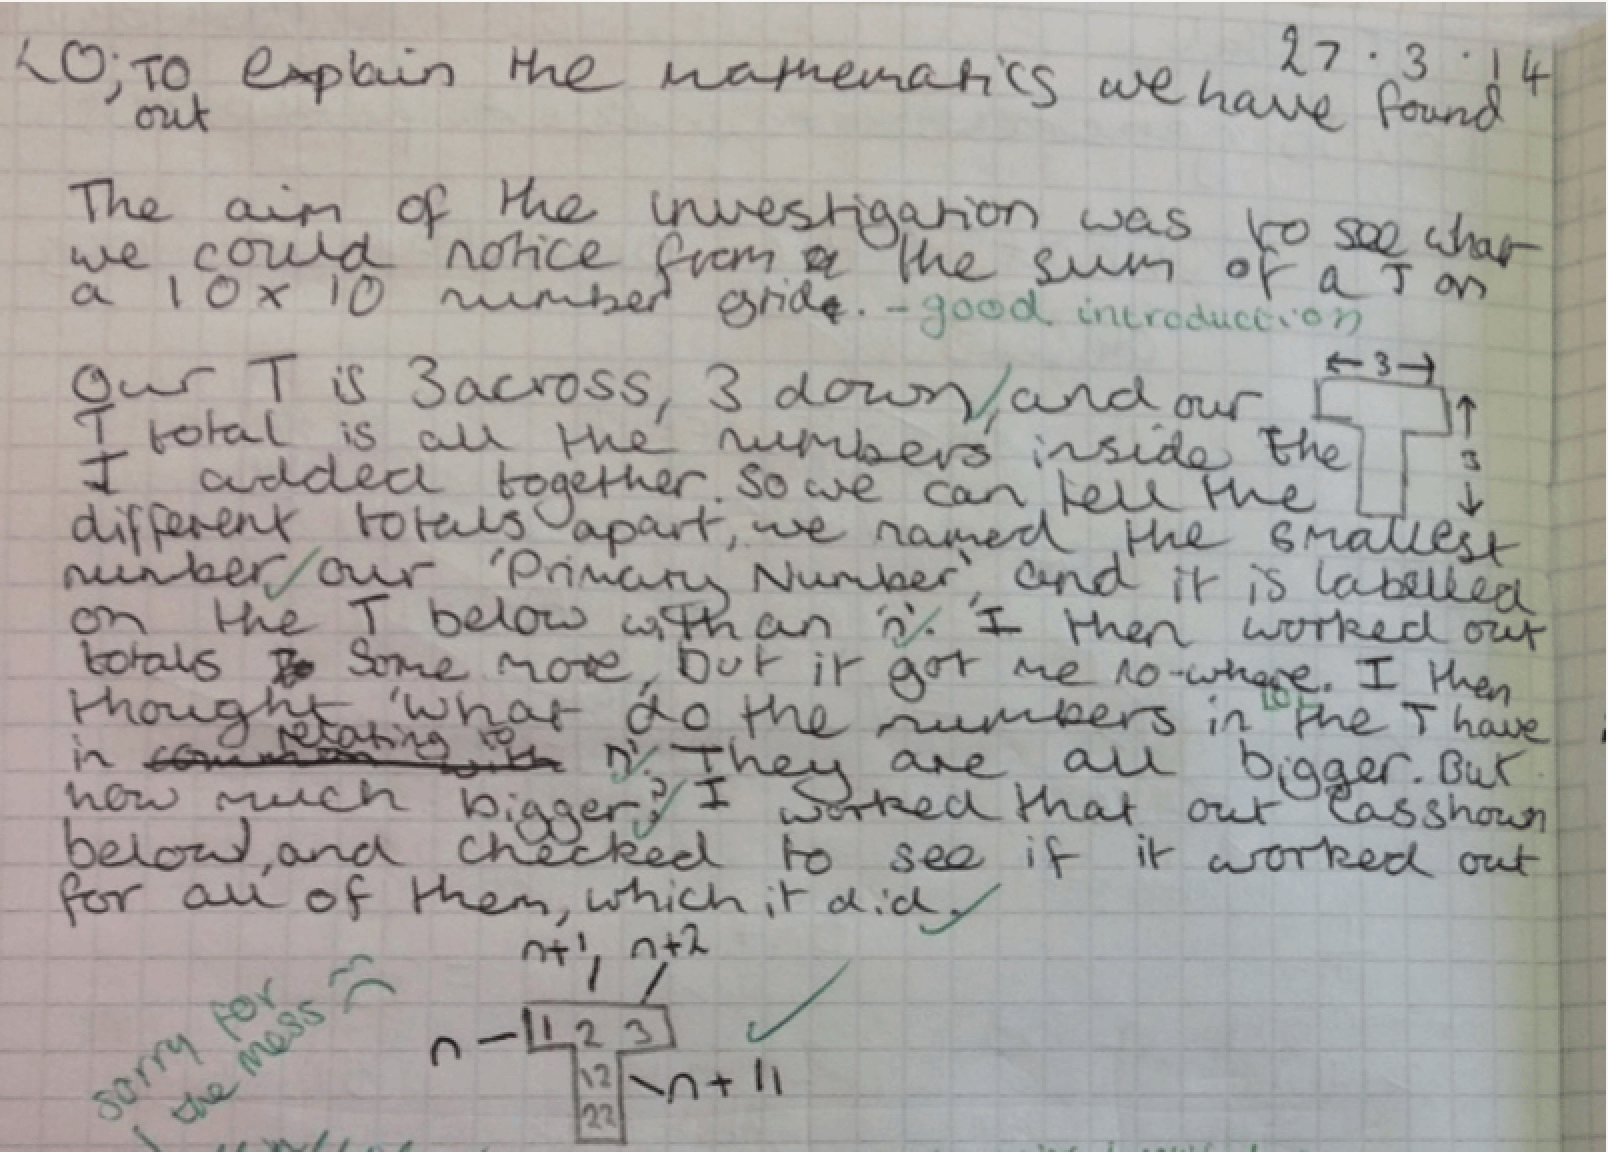 27.3.14
LO; TO explain the mathematics we have found
out
The aim of the investigation was to see what
we could notice from the sum of a T on
a 10x10 number grid. - good introduction
Our T is 3 across, 3 down, and our
←3→
T total is all the numbers inside the
T added together. So we can tell the
3
different totals apart, we named the smallest
number our 'Primary Number', and it is labelled
on the T below with an 'n'. I then worked out
totals some more, but it got me no-where. I then
thought 'what do the numbers in the T have
in relating to n'. They are all bigger. But
how much bigger? I worked that out (as shown
below), and checked to see if it worked out
for all of them, which it did.
n+1 n+2
n 1 2 3
12 n+11
22
sorry for
the mess